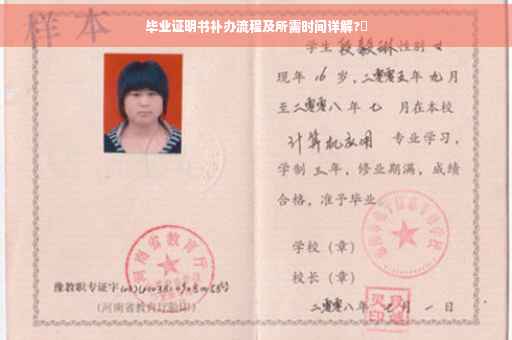 毕业证明书补办流程及所需时间详解?
样本
学生段毅琳性别女
现年16岁,二零零五年九月
至二零零八年七月在本校
计算机应用 专业学习,
学制三年,修业期满,成绩
合格,准予毕业
学校(章)
校长(章)
二零零八年七月一日
河南省教育厅
豫教职专证字
(河南省教育厅验印)